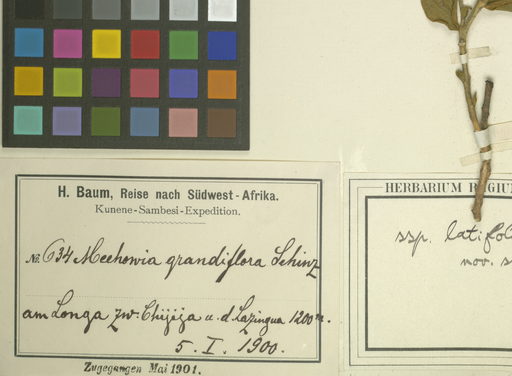 H. Baum, Reise nach Südwest-Afrika.
Kunene-Sambesi-Expedition.
No. 634 Mechowia grandiflora Schinz
am Longa zw. Chijija u. d. Lazingua 1200 m.
5. I. 1900.
Zugegangen Mai 1901.
HERBARIUM REGIUM
ssp. latifol
nov. s